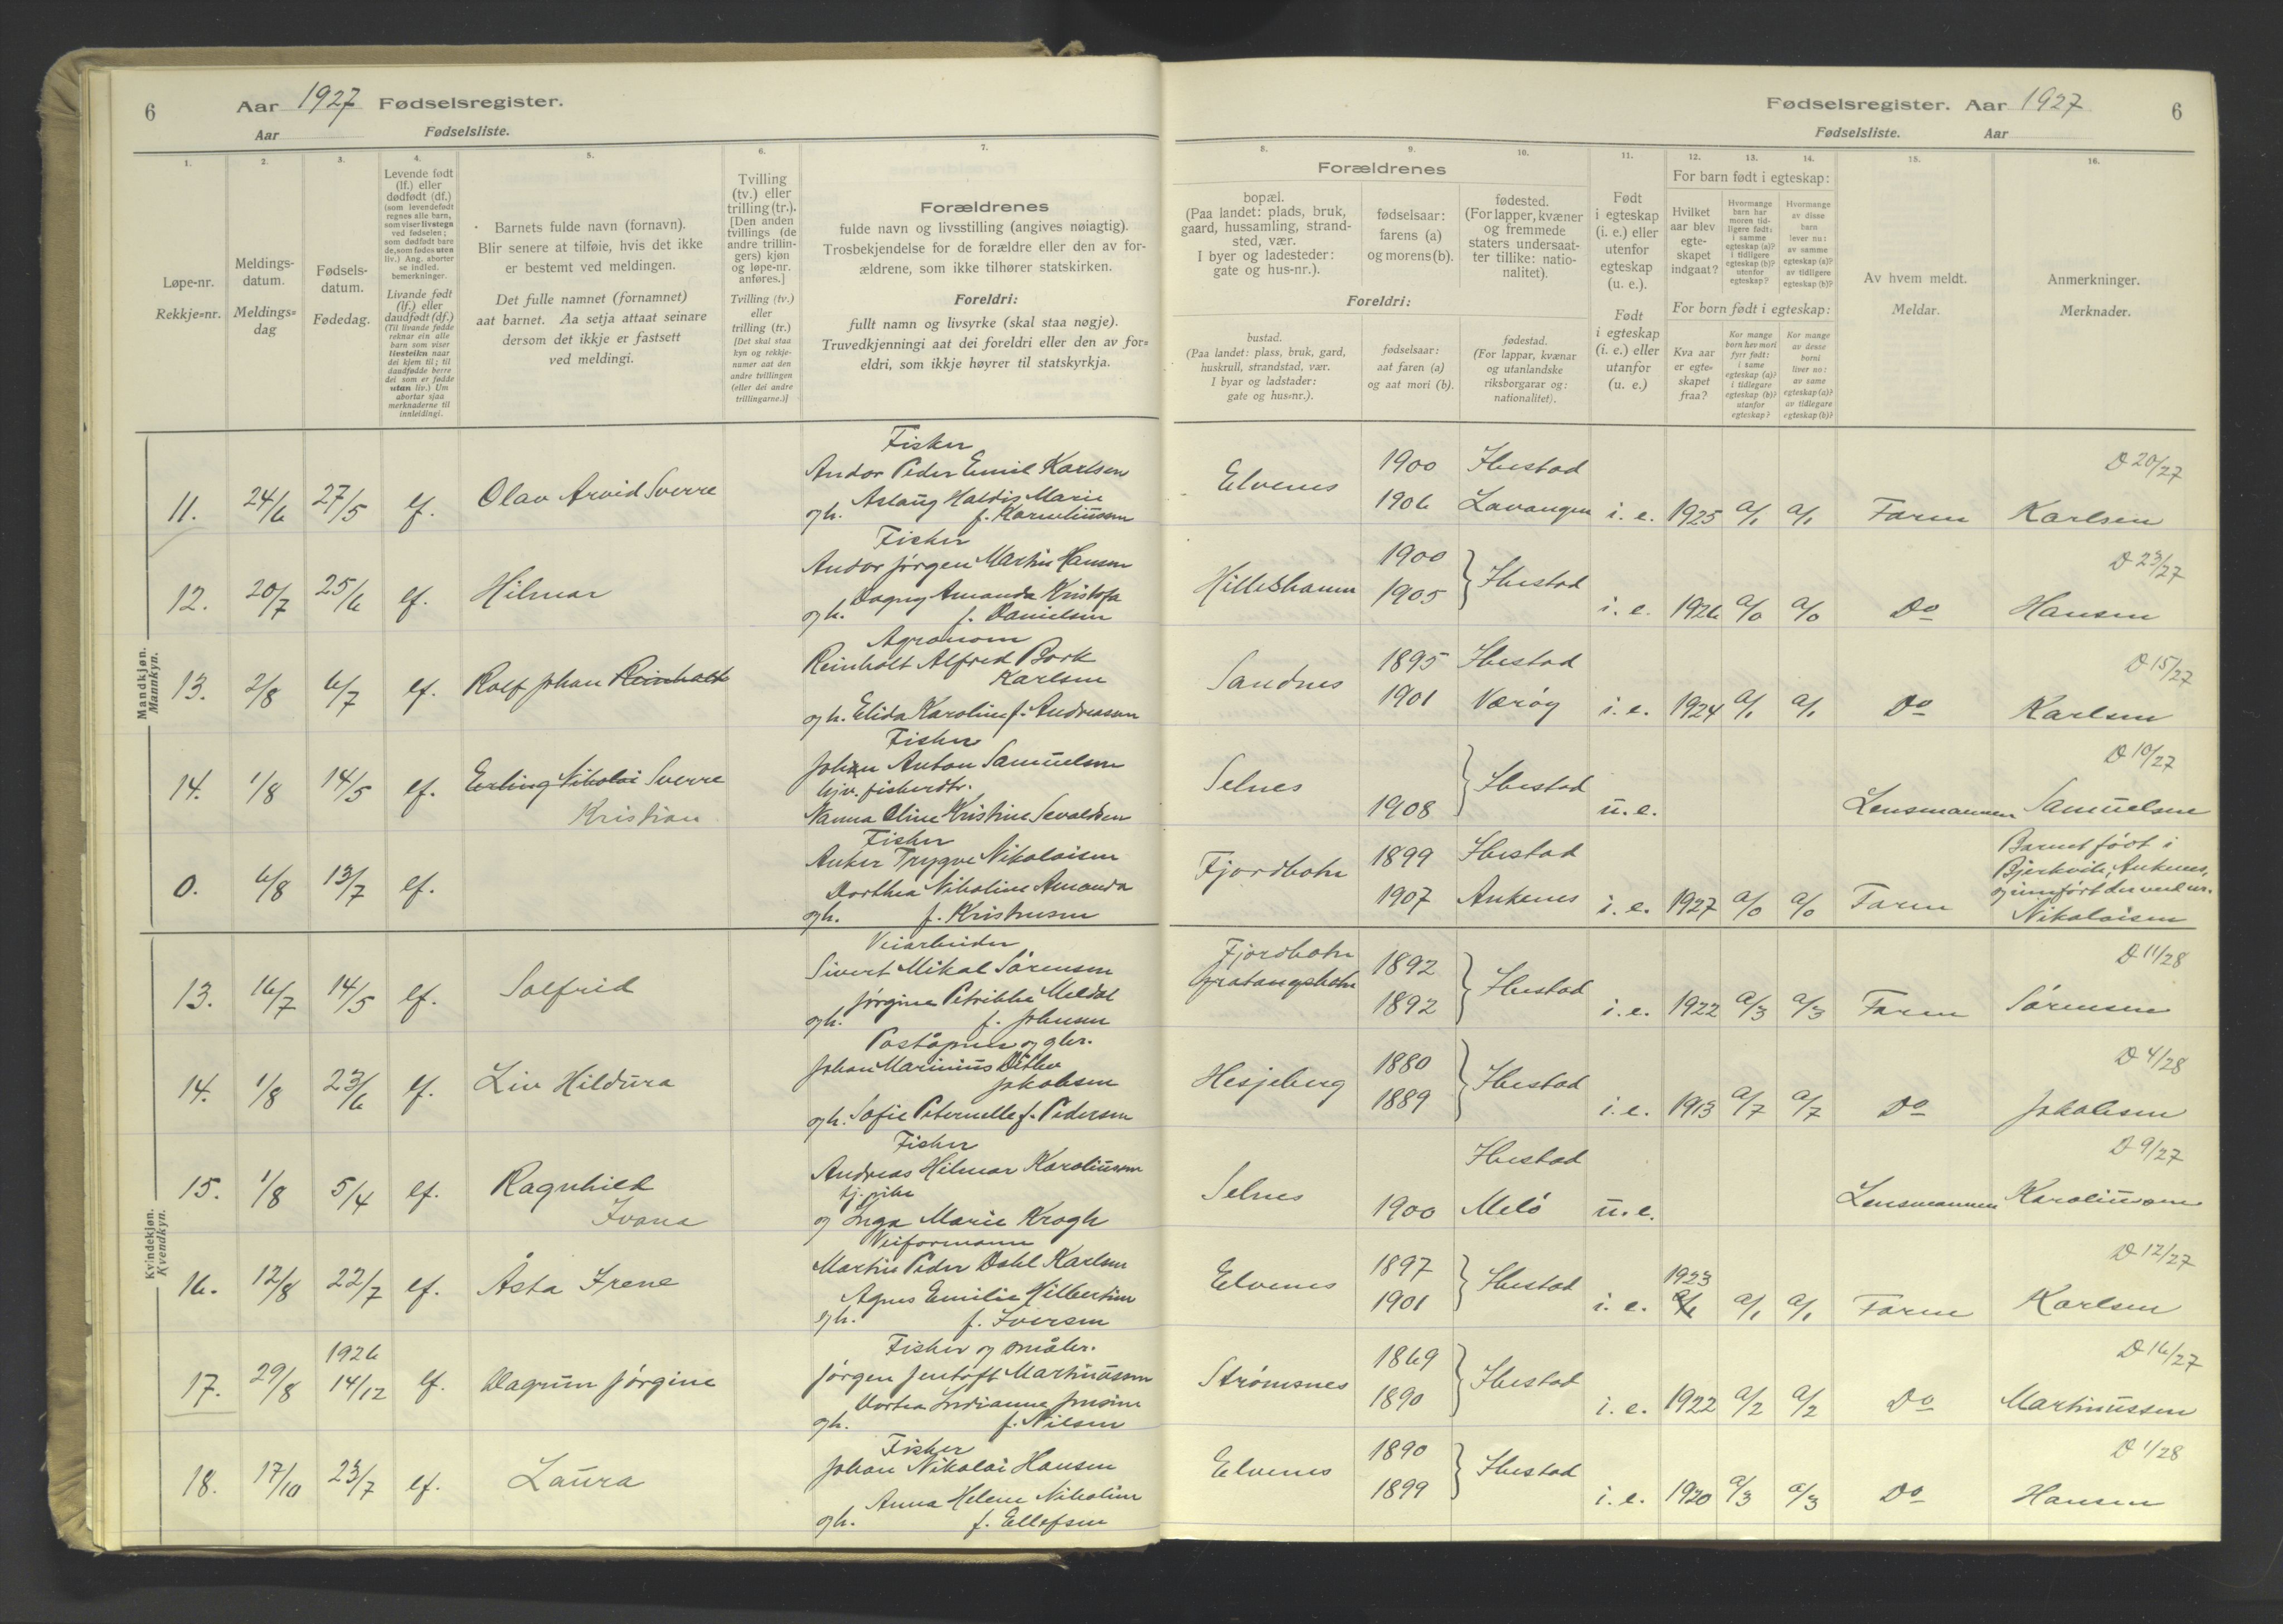 6 Aar 1927 Fødselsregister.
Aar Fødselsliste.
1. 2. 3. 4. 5. 6. 7.
Løpe-nr.
Rekkje=nr.
Meldings-
datum.
Meldings=
dag
Fødsels-
datum.
Fødedag.
Levende født
(lf.) eller
dødfødt (df.)
(som levendefødt
regnes alle barn,
som viser livstegn
ved fødselen;
som dødfødt bare
de, som fødes uten
liv.) Ang. aborter
se indled.
bemerkninger.
Livande født
(lf.) eller
daudfødt (df.)
(Til livande fødde
reknar ein alle
barn som viser
livsteikn naar
dei kjem til; til
daudfødde berre
dei som er fødde
utan liv.) Um
abortar sjaa
merknaderne til
innleidingi.
Barnets fulde navn (fornavn).
Blir senere at tilføie, hvis det ikke
er bestemt ved meldingen.
Det fulle namnet (fornamnet)
aat barnet. Aa setja attaat seinare
dersom det ikkje er fastsett
ved meldingi.
Tvilling
(tv.) eller
trilling (tr.).
[Den anden
tvillings (de
andre trillin-
gers) kjøn
og løpe-nr.
anføres.]
Tvilling (tv.)
eller
trilling (tr.)
[Det skal staa
kyn og rekkje-
numer aat den
andre tvillingen
(eller dei andre
trillingarne.)]
Forældrenes
fulde navn og livsstilling (angives nøiagtig).
Trosbekjendelse for de forældre eller den av for-
ældrene, som ikke tilhører statskirken.
Foreldri:
fullt namn og livsyrke (skal staa nøgje).
Truvedkjenningi aat dei foreldri eller den av for=
eldri, som ikkje høyrer til statskyrkja.
Mandkjøn.
Mannkyn.
11. 24/6 27/5 lf. Olav Arvid Sverre
Fisker
Andor Peder Emil Karlsen
Aslaug Haldis Marie
og h. f. Karoliussen
12. 20/7 25/6 lf. Hilmar
Fisker
Andor Jørgen Martin Hansen
Dagny Amanda Kristofa
og h. f. Danielsen
13. 2/8 6/7 lf. Rolf Johan Reinholt
Agronom
Reinholt Alfred Bork
Karlsen
og h. Elida Karoline f. Andreassen
14. 1/8 14/5 lf. Erling Nikolai Sverre
Kristian
Fisker
Johan Anton Samuelsen
hjv. fiskerdtr.
Nanna Oline Kristine Sevaldsen
0. 6/8 13/7 lf.
Fisker
Anker Trygve Nikolaisen
Dorthea Nikoline Amanda
og h. f. Kristensen
Kvindekjøn.
Kvendkyn.
13. 16/7 14/5 lf. Solfrid
Veiarbeider
Sivert Mikal Sørensen
Jørgine Petrikke Meldal
og h. f. Johnsen
14. 1/8 23/6 lf. Liv Hildura
Poståpner og gbr.
Johan Marinius Ditlev
Jakobsen
og h. Sofie Peternelle f. Pedersen
15. 1/8 5/4 lf. Ragnhild
Ivana
Fisker
Andreas Hilmar Karoliussen
tj. pike
og Inga Marie Krogh
16. 12/8 22/7 lf. Åsta Irene
Veiformann
Martin Peder Dahl Karlsen
Agnes Emilie Hilbertine
og h. f. Iversen
17. 29/8 1926 14/12 lf. Dagrun Jørgine
Fisker og småbr.
Jørgen Jentoft Martinussen
Dortea Indianna Jensine
og h. f. Nilsen
18. 17/10 23/7 lf. Laura
Fisker
Johan Nikolai Hansen
Anna Helene Nikoline
og h. f. Ellefsen
Fødselsregister. Aar 1927 6
Fødselsliste. Aar
8. 9. 10. 11. 12. 13. 14. 15. 16.
Forældrenes
bopæl.
(Paa landet: plads, bruk,
gaard, hussamling, strand-
sted, vær.
I byer og ladesteder:
gate og hus-nr.).
fødselsaar:
farens (a)
og morens (b).
fødested.
(For lapper, kvæner
og fremmede
staters undersaat-
ter tillike: natio-
nalitet).
Foreldri:
bustad.
(Paa landet: plass, bruk, gard,
huskrull, strandstad, vær.
I byar og ladstader:
gate og hus=nr.).
fødselsaar:
aat faren (a)
og aat mori (b).
fødestad.
(For lappar, kvænar
og utanlandske
riksborgarar og:
nationalitet).
Født
i egteskap
(i. e.) eller
utenfor
egteskap
(u. e.).
Født
i egteskap
(i. e.) eller
utanfor
(u. e.)
For barn født i egteskap:
Hvilket
aar blev
egte-
skapet
indgaat?
Hvormange
barn har
moren tid-
ligere født:
i samme
egteskap (a)?
i tidligere
egteskap (b)?
utenfor
egteskap?
Hvormange
av disse
barn
lever nu:
av samme
egteskap (a)?
av tidligere
egteskap (b)?
For born født i egteskap:
Kva aar
er egte=
skapet
fraa?
Kor mange
born hev mori
fyrr født:
i same
egteskap (a)?
i tidlegare
egteskap (b)?
utanfor
egteskap?
Kor mange
av desse
borni
liver no:
av same
egteskap (a)?
av tidlegare
egteskap (b)?
Av hvem meldt.
Meldar.
Anmerkninger.
Merknader.
D 20/27
Elvenes 1900 Ibestad
1906 Lavangen i. e. 1925 a/1 a/1 Faren Karlsen
D 23/27
Hilleshamn 1900 1905 } Ibestad i. e. 1926 a/0 a/0 Do Hansen
D 15/27
Sandnes 1895 Ibestad
1901 Værøy i. e. 1924 a/1 a/1 Do Karlsen
D 10/27
Selnes 1908 } Ibestad u. e. Lensmannen Samuelsen
Fjordbotn 1899 Ibestad
1907 Ankenes i. e. 1927 a/0 a/0 Faren
Barnet født i
Bjerkvik, Ankenes,
og innført der ved nr.
Nikolaisen
D 11/28
Fjordbotn
Gratangsbotn 1892 1892 } Ibestad i. e. 1922 a/3 a/3 Faren Sørensen
D 4/28
Hesjeberg 1880 1889 } Ibestad i. e. 1913 a/7 a/7 Do Jakobsen
D 9/27
Ibestad
Selnes 1900 Melø u. e. Lensmannen Karoliussen
D 12/27
Elvenes 1897 1901 } Ibestad i. e. 1923 a/1 a/1 a/1 Faren Karlsen
D 16/27
Strømsnes 1869 1890 } Ibestad i. e. 1922 a/2 a/2 Do Martinussen
D 1/28
Elvenes 1890 1899 } Ibestad i. e. 1920 a/3 a/3 Do Hansen